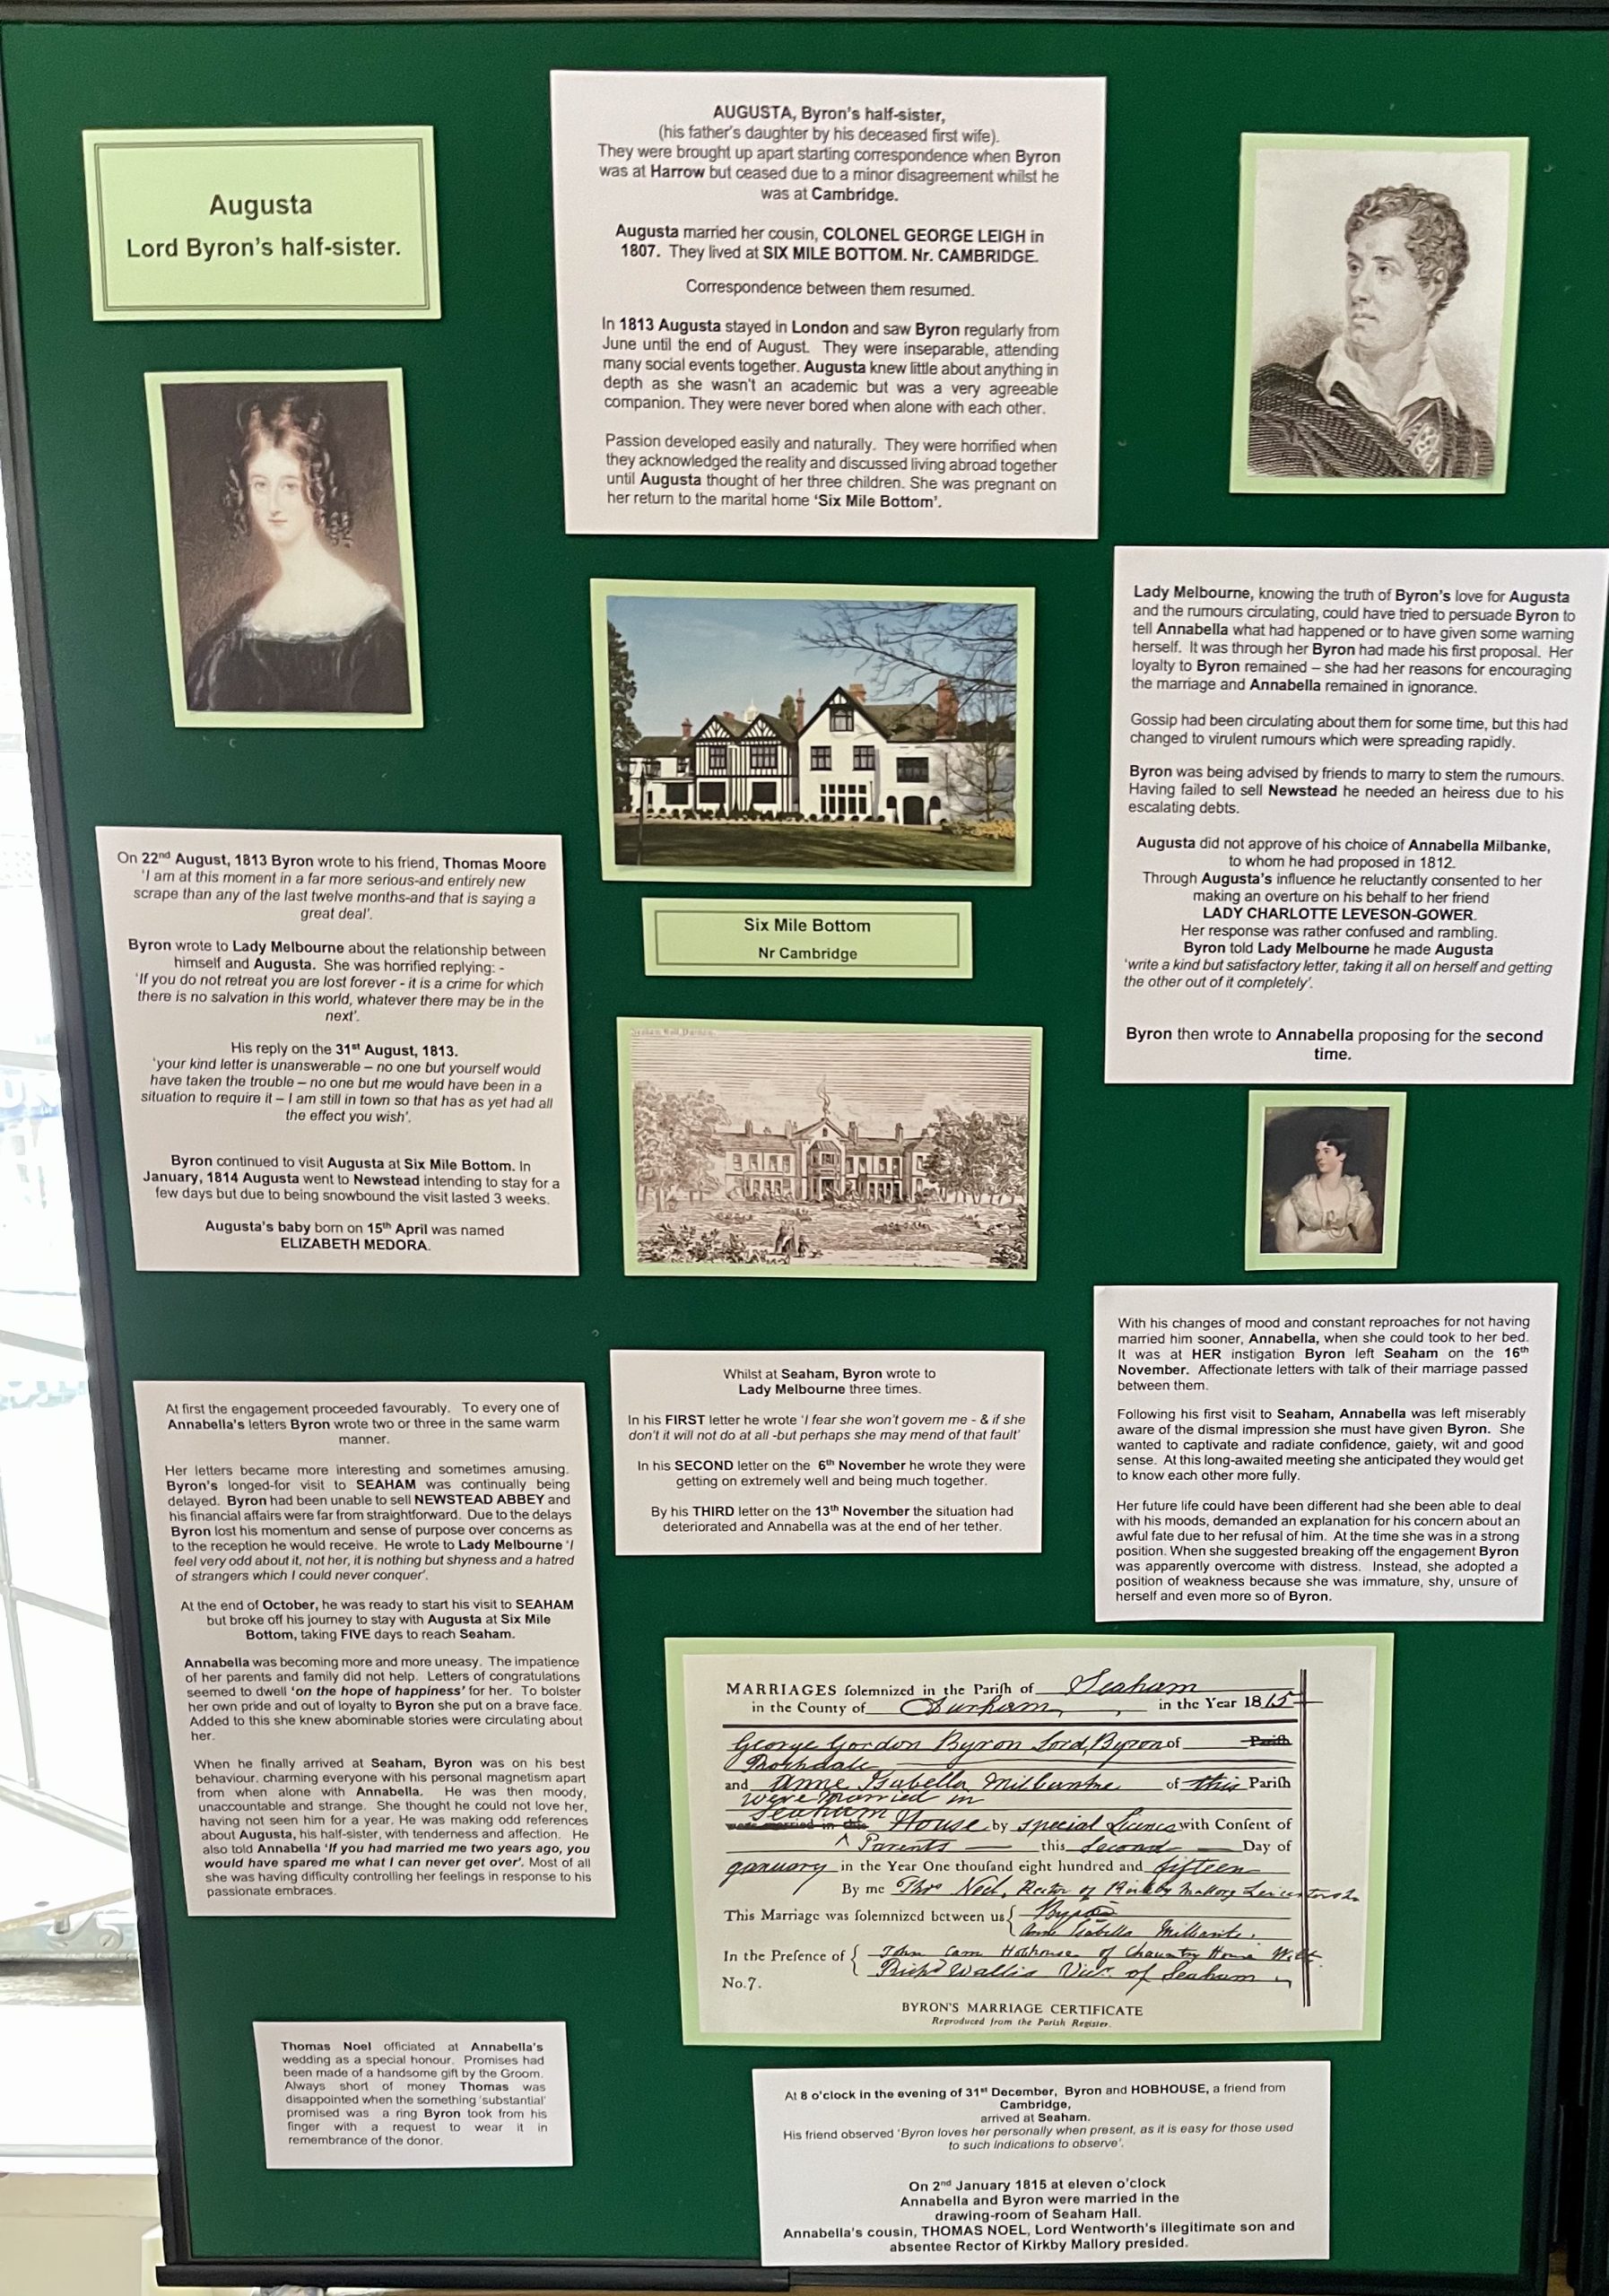 Augusta
Lord Byron's half-sister.
AUGUSTA, Byron's half-sister,
(his father's daughter by his deceased first wife).
They were brought up apart starting correspondence when Byron
was at Harrow but ceased due to a minor disagreement whilst he
was at Cambridge.
Augusta married her cousin, COLONEL GEORGE LEIGH in
1807. They lived at SIX MILE BOTTOM. Nr. CAMBRIDGE.
Correspondence between them resumed.
In 1813 Augusta stayed in London and saw Byron regularly from
June until the end of August. They were inseparable, attending
many social events together. Augusta knew little about anything in
depth as she wasn't an academic but was a very agreeable
companion. They were never bored when alone with each other.
Passion developed easily and naturally. They were horrified when
they acknowledged the reality and discussed living abroad together
until Augusta thought of her three children. She was pregnant on
her return to the marital home 'Six Mile Bottom'.
On 22nd August, 1813 Byron wrote to his friend, Thomas Moore
'I am at this moment in a far more serious-and entirely new
scrape than any of the last twelve months-and that is saying a
great deal'.
Byron wrote to Lady Melbourne about the relationship between
himself and Augusta. She was horrified replying: -
'If you do not retreat you are lost forever - it is a crime for which
there is no salvation in this world, whatever there may be in the
next'.
His reply on the 31st August, 1813.
'your kind letter is unanswerable – no one but yourself would
have taken the trouble – no one but me would have been in a
situation to require it – I am still in town so that has as yet had all
the effect you wish'.
Byron continued to visit Augusta at Six Mile Bottom. In
January, 1814 Augusta went to Newstead intending to stay for a
few days but due to being snowbound the visit lasted 3 weeks.
Augusta's baby born on 15th April was named
ELIZABETH MEDORA.
Six Mile Bottom
Nr Cambridge
Seaham Hall, Durham.
Lady Melbourne, knowing the truth of Byron's love for Augusta
and the rumours circulating, could have tried to persuade Byron to
tell Annabella what had happened or to have given some warning
herself. It was through her Byron had made his first proposal. Her
loyalty to Byron remained – she had her reasons for encouraging
the marriage and Annabella remained in ignorance.
Gossip had been circulating about them for some time, but this had
changed to virulent rumours which were spreading rapidly.
Byron was being advised by friends to marry to stem the rumours.
Having failed to sell Newstead he needed an heiress due to his
escalating debts.
Augusta did not approve of his choice of Annabella Milbanke,
to whom he had proposed in 1812.
Through Augusta's influence he reluctantly consented to her
making an overture on his behalf to her friend
LADY CHARLOTTE LEVESON-GOWER.
Her response was rather confused and rambling.
Byron told Lady Melbourne he made Augusta
'write a kind but satisfactory letter, taking it all on herself and getting
the other out of it completely'.
Byron then wrote to Annabella proposing for the second
time.
At first the engagement proceeded favourably. To every one of
Annabella's letters Byron wrote two or three in the same warm
manner.
Her letters became more interesting and sometimes amusing.
Byron's longed-for visit to SEAHAM was continually being
delayed. Byron had been unable to sell NEWSTEAD ABBEY and
his financial affairs were far from straightforward. Due to the delays
Byron lost his momentum and sense of purpose over concerns as
to the reception he would receive. He wrote to Lady Melbourne 'I
feel very odd about it, not her, it is nothing but shyness and a hatred
of strangers which I could never conquer'.
At the end of October, he was ready to start his visit to SEAHAM
but broke off his journey to stay with Augusta at Six Mile
Bottom, taking FIVE days to reach Seaham.
Annabella was becoming more and more uneasy. The impatience
of her parents and family did not help. Letters of congratulations
seemed to dwell 'on the hope of happiness' for her. To bolster
her own pride and out of loyalty to Byron she put on a brave face.
Added to this she knew abominable stories were circulating about
her.
When he finally arrived at Seaham, Byron was on his best
behaviour, charming everyone with his personal magnetism apart
from when alone with Annabella. He was then moody,
unaccountable and strange. She thought he could not love her,
having not seen him for a year. He was making odd references
about Augusta, his half-sister, with tenderness and affection. He
also told Annabella 'If you had married me two years ago, you
would have spared me what I can never get over'. Most of all
she was having difficulty controlling her feelings in response to his
passionate embraces.
Whilst at Seaham, Byron wrote to
Lady Melbourne three times.
In his FIRST letter he wrote 'I fear she won't govern me - & if she
don't it will not do at all -but perhaps she may mend of that fault'
In his SECOND letter on the 6th November he wrote they were
getting on extremely well and being much together.
By his THIRD letter on the 13th November the situation had
deteriorated and Annabella was at the end of her tether.
With his changes of mood and constant reproaches for not having
married him sooner, Annabella, when she could took to her bed.
It was at HER instigation Byron left Seaham on the 16th
November. Affectionate letters with talk of their marriage passed
between them.
Following his first visit to Seaham, Annabella was left miserably
aware of the dismal impression she must have given Byron. She
wanted to captivate and radiate confidence, gaiety, wit and good
sense. At this long-awaited meeting she anticipated they would get
to know each other more fully.
Her future life could have been different had she been able to deal
with his moods, demanded an explanation for his concern about an
awful fate due to her refusal of him. At the time she was in a strong
position. When she suggested breaking off the engagement Byron
was apparently overcome with distress. Instead, she adopted a
position of weakness because she was immature, shy, unsure of
herself and even more so of Byron.
MARRIAGES solemnized in the Parish of Seaham
in the County of Durham, in the Year 1815
George Gordon Byron Lord Byron of Parish
and Anne Isabella Milbanke of this Parish
were married in
Seaham
were married in this House by special Licence with Consent of
Parents this Second Day of
January in the Year One thousand eight hundred and fifteen
By me Thos Noel, Rector of Kirkby Mallory Leicestersh
This Marriage was solemnized between us { Byron
Anne Isabella Milbanke.
In the Presence of { John Cam Hobhouse of Chauntry House Wilts.
Richd Wallis Vicr. of Seaham
No.7.
BYRON'S MARRIAGE CERTIFICATE
Reproduced from the Parish Register.
Thomas Noel officiated at Annabella's
wedding as a special honour. Promises had
been made of a handsome gift by the Groom.
Always short of money Thomas was
disappointed when the something 'substantial'
promised was a ring Byron took from his
finger with a request to wear it in
remembrance of the donor.
At 8 o'clock in the evening of 31st December, Byron and HOBHOUSE, a friend from
Cambridge,
arrived at Seaham.
His friend observed 'Byron loves her personally when present, as it is easy for those used
to such indications to observe'.
On 2nd January 1815 at eleven o'clock
Annabella and Byron were married in the
drawing-room of Seaham Hall.
Annabella's cousin, THOMAS NOEL, Lord Wentworth's illegitimate son and
absentee Rector of Kirkby Mallory presided.